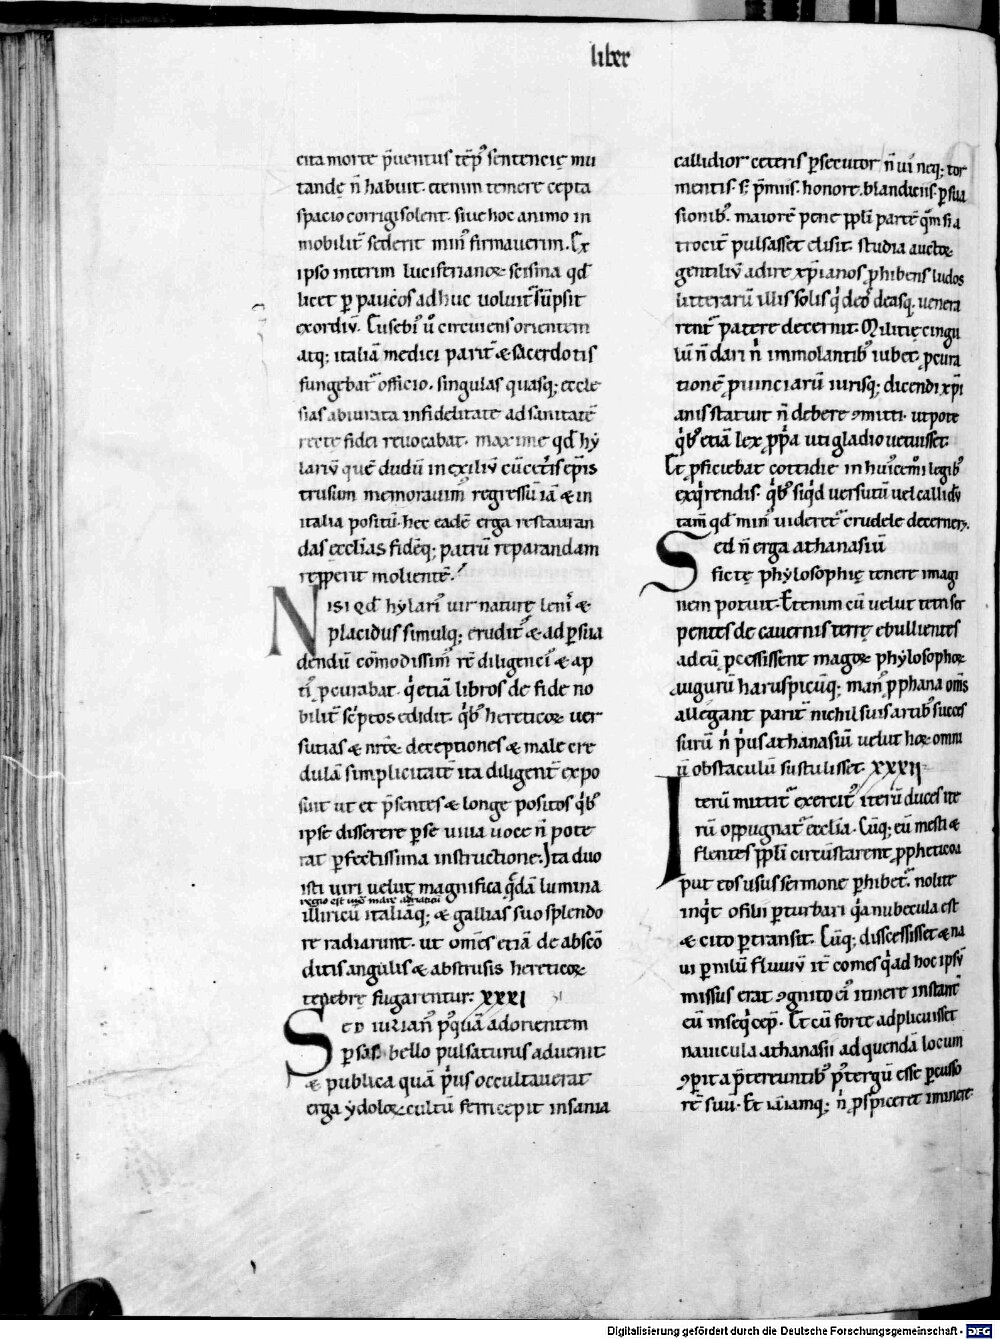 liber
cita morte p̄uentus tēpꝰ sentencię mu
tandę n̄ habuit. etenim temere cepta
spacio corrigi solent. siue hoc animo in
mobilit̄ sederit minꝰ firmauerim. Ex
ipso interim luciferianoꝝ scisma qd̄
licet ꝑ paucos adhuc uoluit̄ sūpsit
exordiū. Eusebiꝰ ū circuiens orientem
atq; italiā medici parit̄ & sacerdotis
fungebat᷑ officio. singulas quasq; eccle
sias abiurata infidelitate ad sanitatē
recte fidei reuocabat. maxime qd̄ hy
lariū quē dudū in exiliū cū cet̄is ep̄is
trusum memorauimꝰ regressū iā & in
italia positū. hec eadē erga restauran
das ecclīas fidēq; patrū reparandam
repperit molientē.
Nisi qd̄ hylariꝰ uir naturę leniꝰ &
placidus simulq; eruditꝰ & ad ꝑsua
dendū cōmodissimꝰ rē diligenciꝰ & ap
tiꝰ ꝓcurabat. qi etiā libros de fide no
bilit̄ sc̄ptos edidit. qꝰb hereticoꝝ uer
sutias & nr̄oꝝ deceptiones & male cre
dulā simplicitatē ita diligent̄ expo
suit ut et p̄sentes & longe positos qꝰb
ipse disserere ꝑ se uiua uoce n̄ pote
rat ꝑfectissima instructione. Ita duo
isti uiri uelut magnifica qdā lumina
regio est iux̄ mare adriaticū
illiricū italiāq; & gallias suo splendo
re radiarunt. ut omēs etiā de abscō
ditis angulis & abstrusis hereticoꝝ
tenebrę fugarentur. XXXI
Sed iulianꝰ pꝰquā ad orientem
ꝑsas bello pulsaturus aduenit
& publica quā pius occultauerat
erga ydoloꝝ cultū ferri cepit insania
callidior ceteris ꝑsecutor n̄ ui neq; tor
mentis. s; p̄miis. honore. blandiciis. ꝑsua
sionibꝰ. maiorē pene ppl̄i partē qm̄ si a
trocit̄ pulsasset elisit. studia auctoꝝ
gentiliū adire xp̄ianos ꝓhibens ludos
litterarū illis solis qi deos deasq. uenera
rent᷑ patere decernit. Militię cingu
lū n̄ dari ni immolantibꝰ iubet. ꝓcura
tionē ꝓuinciarū iurisq; dicendi xp̄i
anis statuit n̄ debere ꝯmitti. utpote
qꝰb etiā lex ꝓp̄a uti gladio uetuisset.
Et ꝓficiebat cottidie in huiꝰcemꝰi legibꝰ
exqirendis. qꝰb siqid uersutū uel callidū
tam̄ qd̄ minꝰ uideret᷑ crudele decerner&.
Sed n̄ erga athanasiū
fictę phylosophię tenere imagi
nem potuit. Etenim cū uelut tetri ser
pentes de cauernis terrę ebullientes
ad eū ꝓcessissent magoꝝ phylosophoꝝ
auguru̅ haruspicūq; manꝰ ꝓphana om̄s
allegant parit̄ nichil suis artibꝰ succes
surū ni pꝰus athanasiū uelut hoꝝ omni
ū obstaculū sustulisset. XXXII
Iterū mittit᷑ exercitꝰ iterū duces ite
rū oppugnat᷑ ecclīa. Cūq; eū mesti &
flentes ppl̄i circūstarent ꝓpheticoa
put eos usus sermone ꝑhibet᷑. nolite
inqit o filii ꝑturbari qia nubecula est
& cito ꝑtransit. Cūq; discessisset & na
ui ꝑ nilū fluuiū it̄ comes qi ad hoc ipsū
missus erat ꝯgnito eiꝰ itinere instant᷑
eū inseqi cep̄. Et cū forte adplicuisset
nauicula athanasii ad quendā locum
ꝯperit a p̄tereuntibꝰ pꝰ tergū esse ꝑcusso
rē suū. Et iā iamq; ni ꝓspiceret iminere